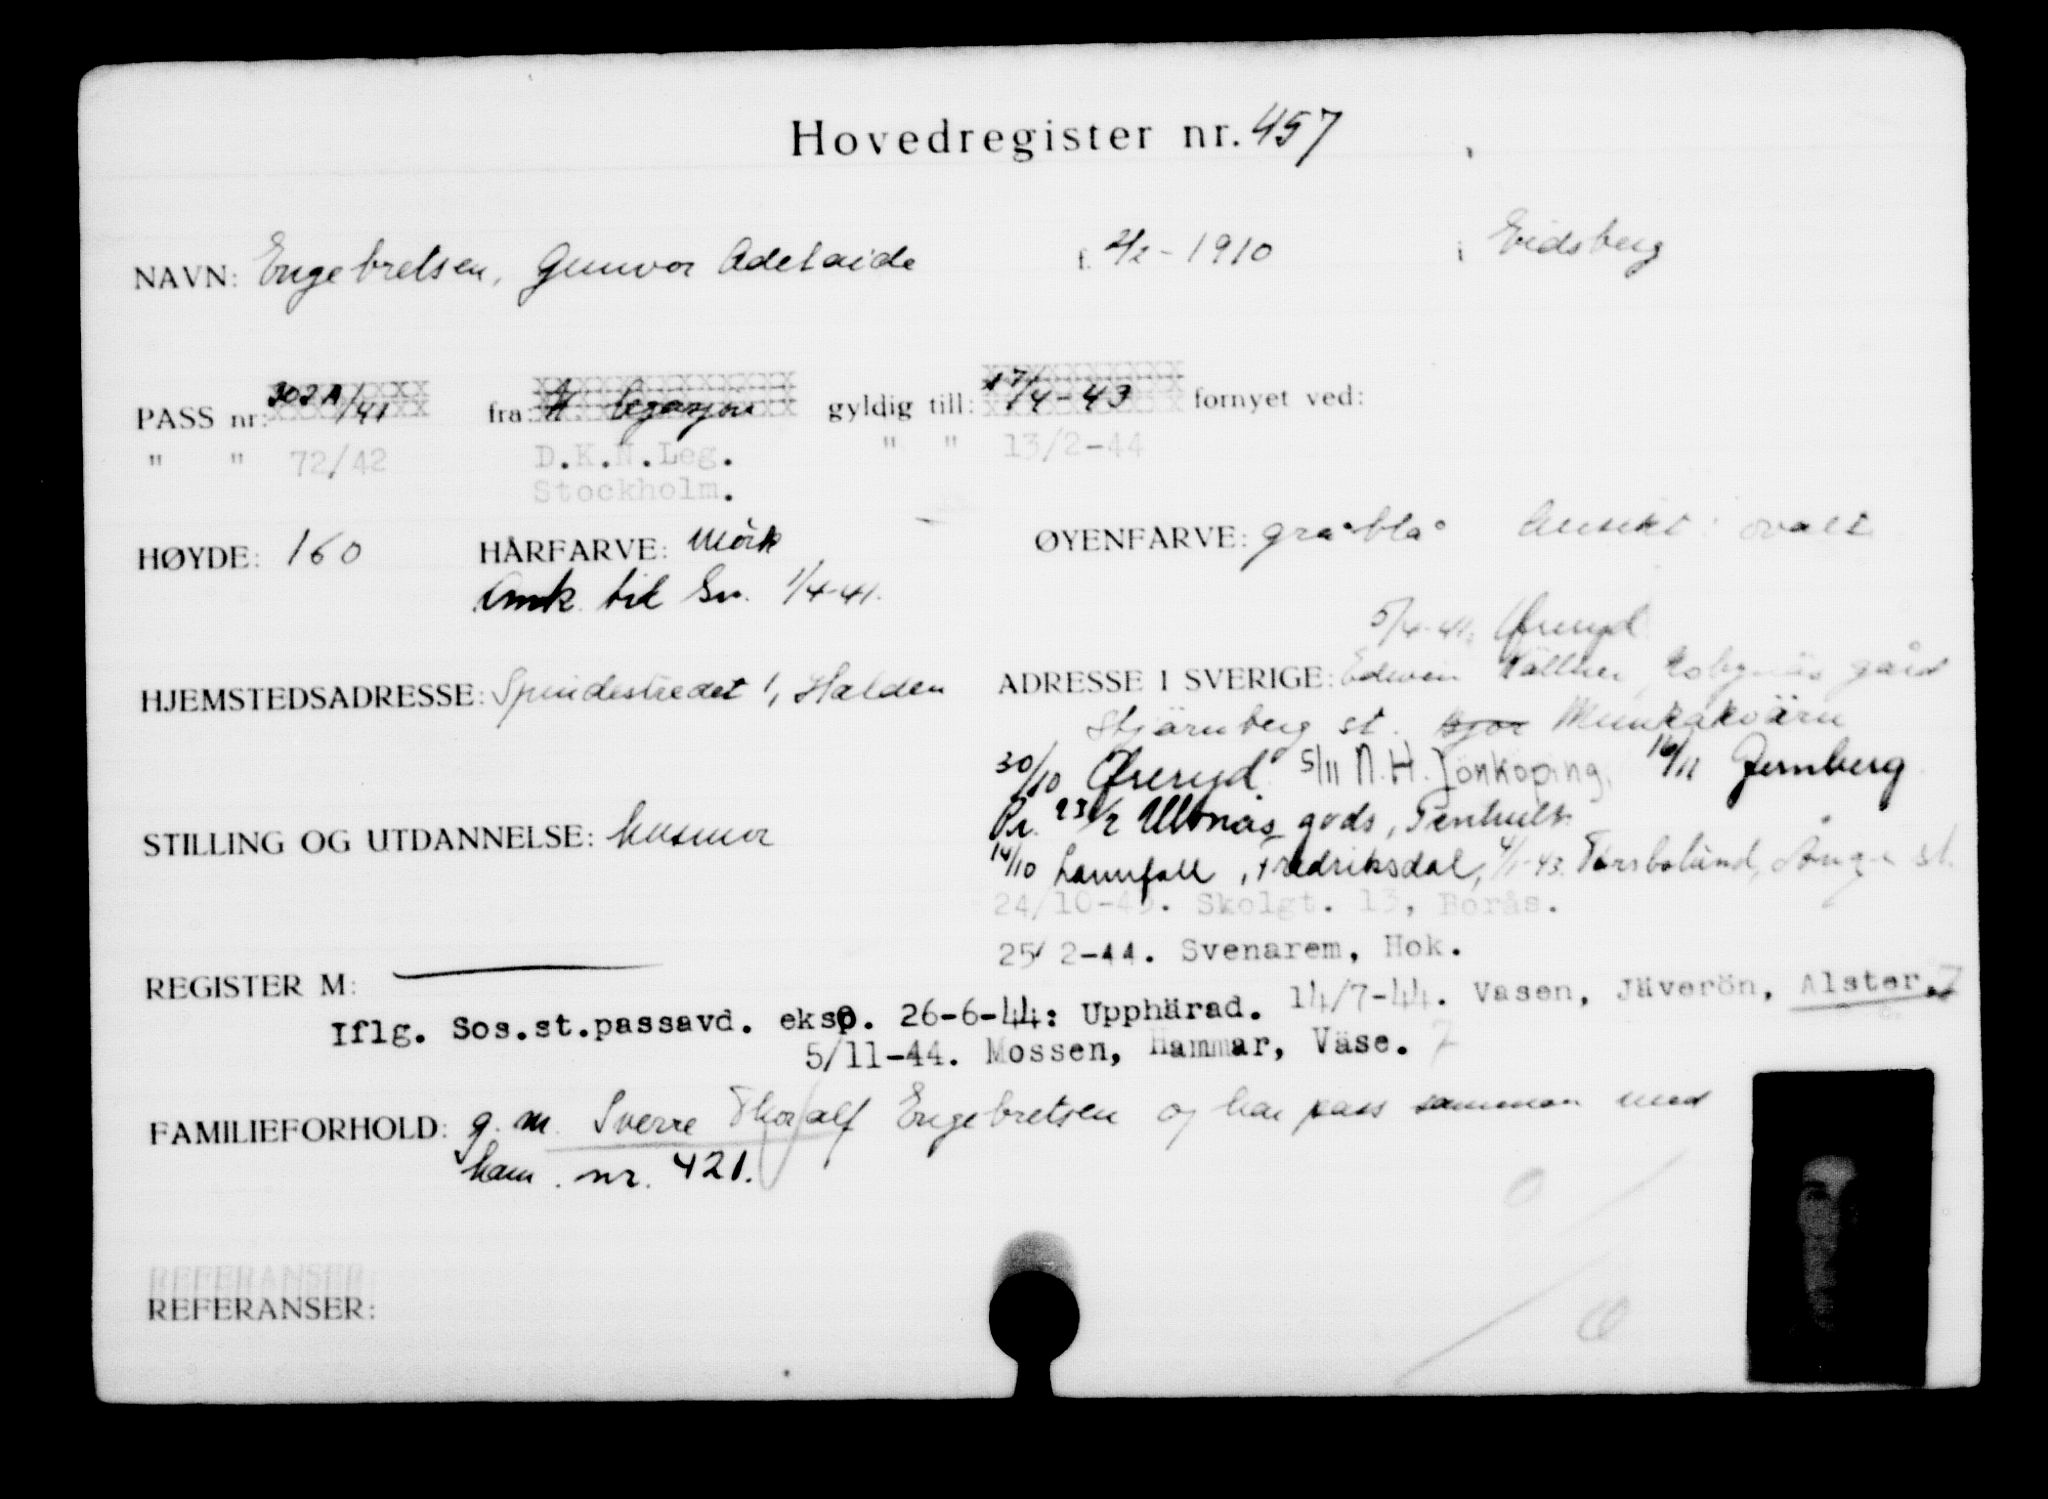 Hovedregister nr. 457
NAVN: Engebretsen, Gunvor Adelaide f. 2/2-1910 i Eidsberg
PASS nr: 302A/41 fra: Legasjon gyldig till: 17/4-43 fornyet ved:
" " 72/42 D.K.N.Leg. " " 13/2-44
Stockholm.
HØYDE: 160 HÅRFARVE: Mörk ØYENFARVE: gråblå Ansikt: ovalt
Ank. til Sv. 1/4-41.
5/4-41. Øreryd
HJEMSTEDSADRESSE: Spindestredet 1, Halden ADRESSE I SVERIGE: Edwin gård
Stjärnberg st. Munkakvärn
30/10 Øreryd. 5/11 N.H. Jönköping, 16/11 Jernberg
STILLING OG UTDANNELSE: husmor Pr. 23/2 Ullnäs gods, Tenhult.
14/10 Lannfall, Fredriksdal, 4/1-43. Torsbolund, Ånge st.
24/10-43. Skolgt. 13, Borås.
25/2-44. Svenarem, Hok.
REGISTER M:
Iflg. Sos.st.passavd. eksp. 26-6-44: Upphärad. 14/7-44. Vasen, Jäverön, Alster.
5/11-44. Mossen, Hammar, Väse.
FAMILIEFORHOLD: g. m. Sverre Thoralf Engebretsen og har pass sammen med
ham. nr. 421.
REFERANSER
REFERANSER: